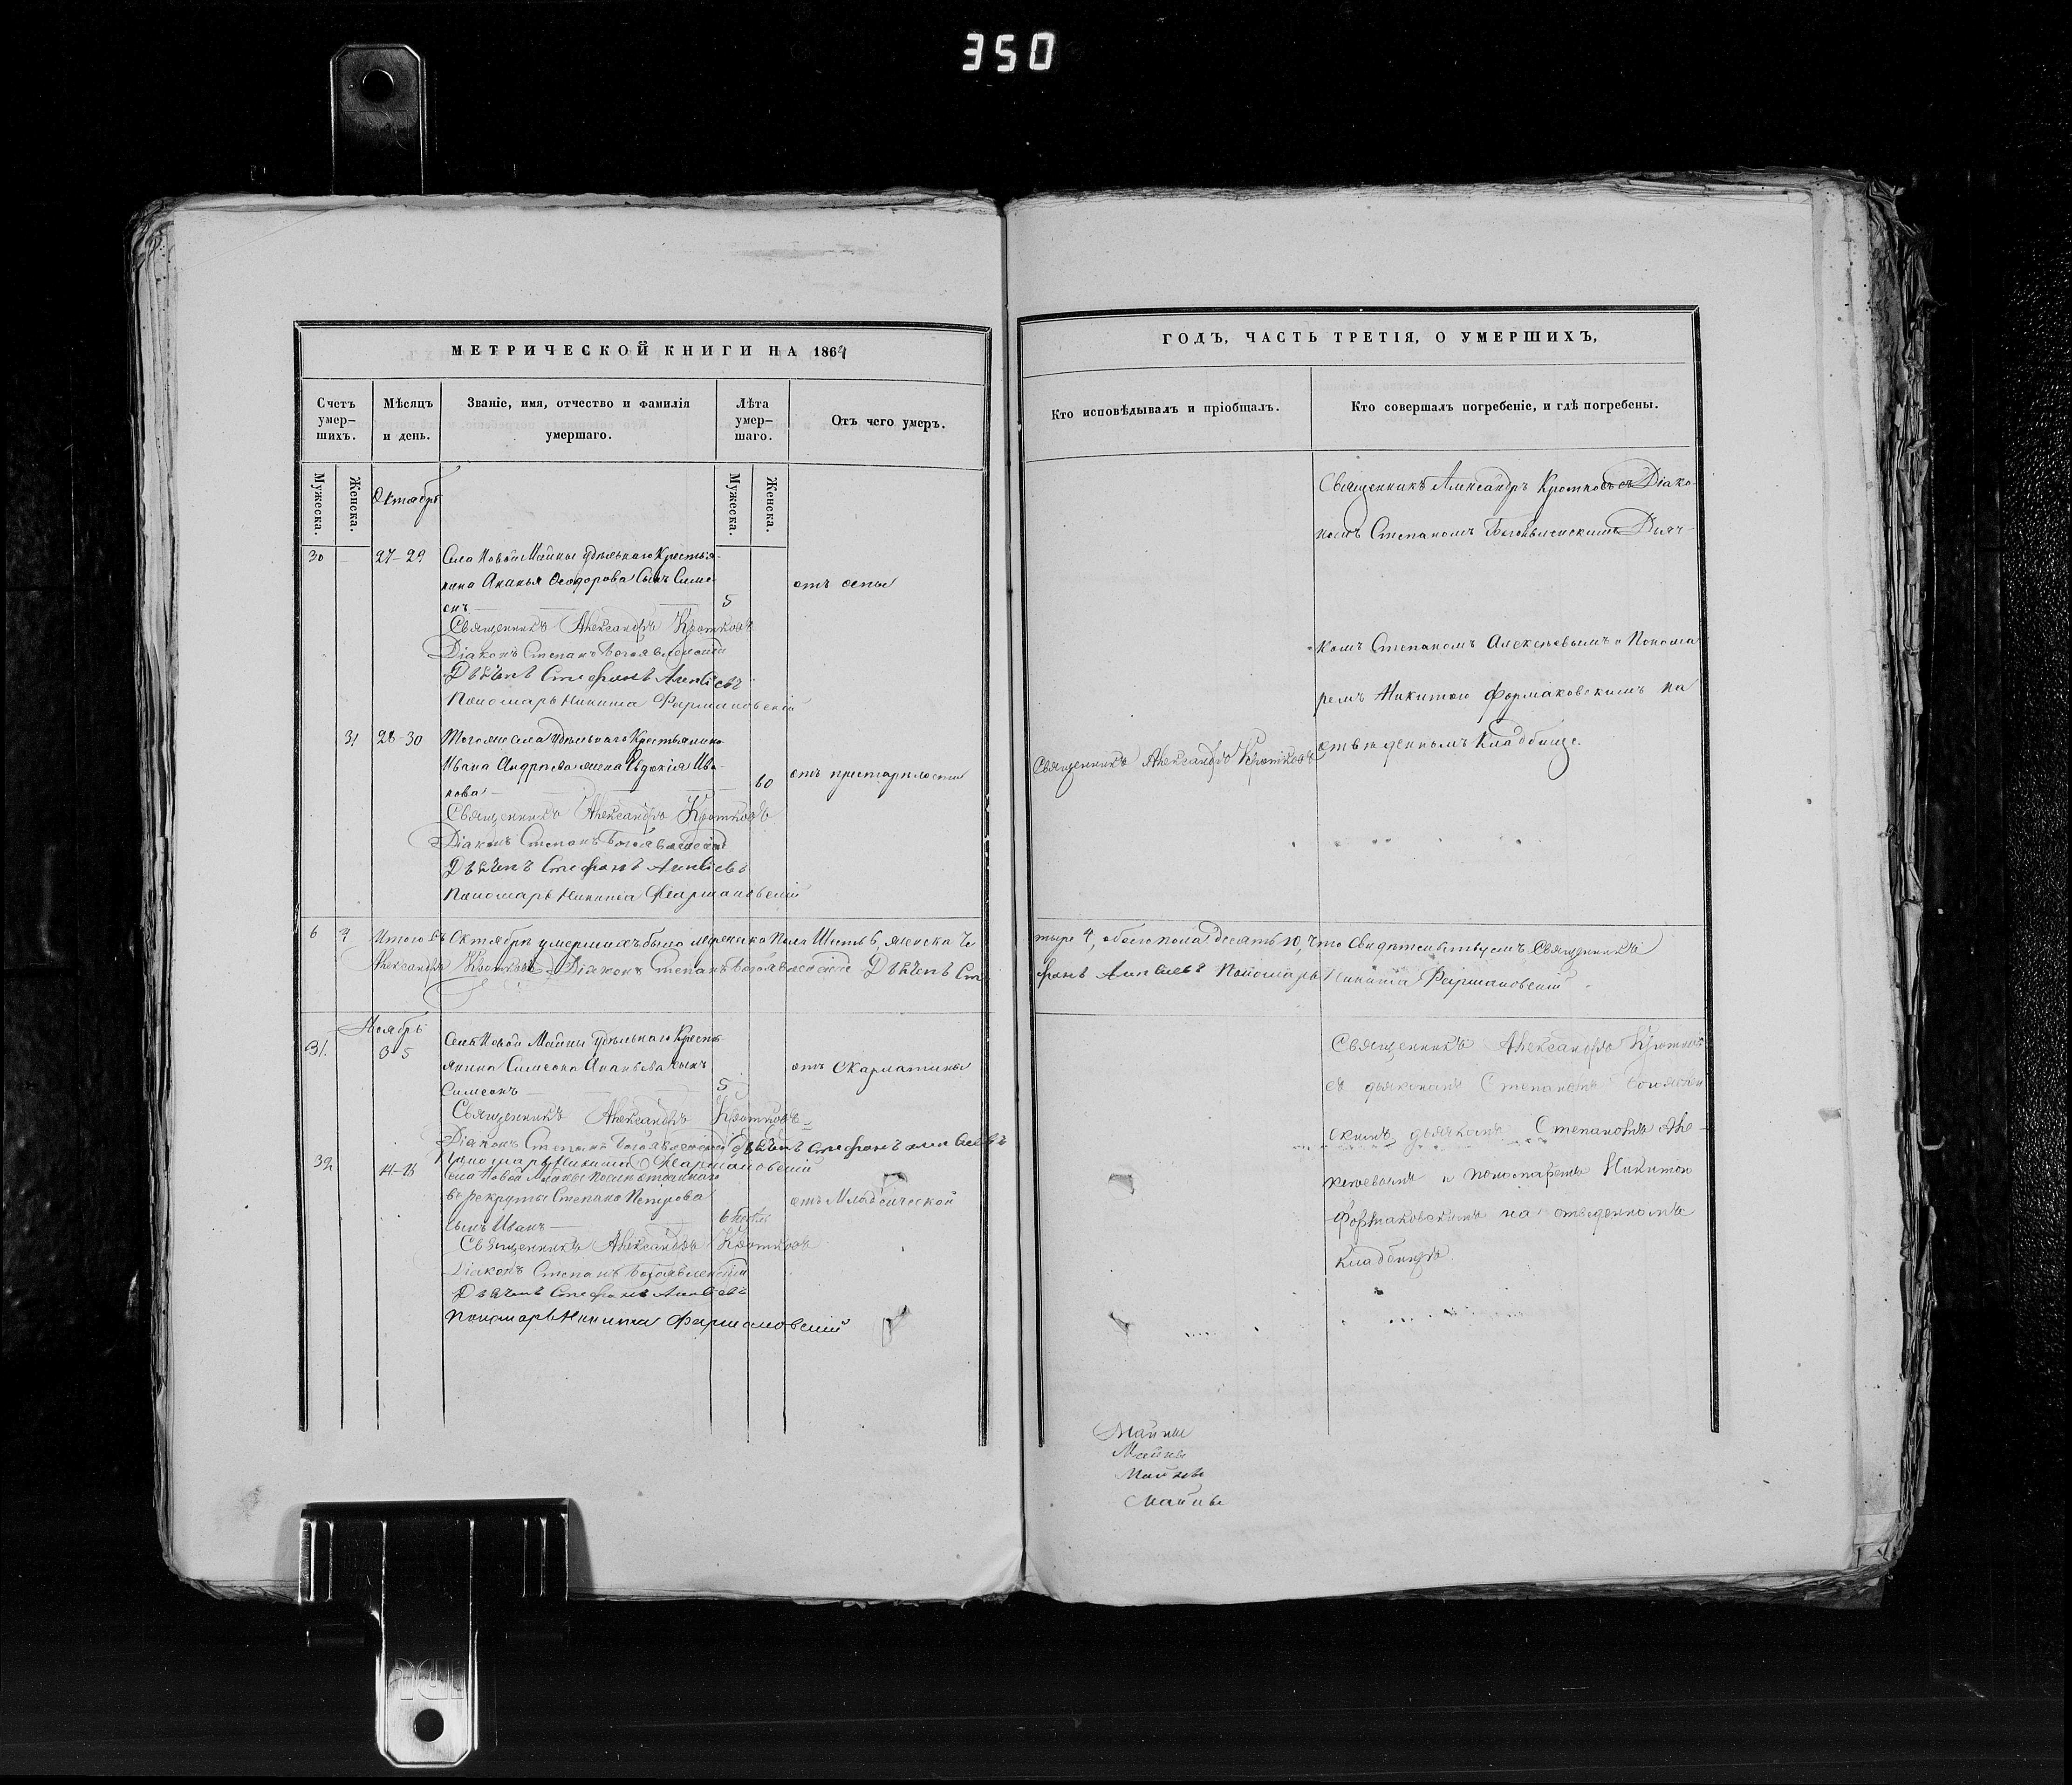 350
МЕТРИЧЕСКОЙ КНИГИ НА 1864
Счетъ умер-шихъ.
Мѣсяцъ и день.
Званіе, имя, отчество и фамилія умершаго.
Лѣта умер-шаго.
Отъ чего умеръ.
Мужеска.
Женска.
Мужеска.
Женска.
Октябрь
30 27-29 Села Новой Майны удѣльнаго Крестья-
нина Ананья Ѳеодорова Сынъ Симе- отъ оспы
онъ 5
Священникъ Александръ Кротковъ
Діаконъ Степанъ Богоявленскій
Дьячекъ Стефанъ
Пономарь Никита
31 28-30 Тогоже села удѣльнаго Крестьянина
Ивана Андреева жена Евдокія Ива- отъ престарѣлости
нова 60
Священникъ Александръ Кротковъ
Діаконъ Степанъ Богоявленскій
Дьячекъ Стефанъ
Пономарь Никита
6 4 Итого въ Октябрѣ умершихъ было мужеска пола Шесть 6, женска че
Александръ Кротковъ Діаконъ Степанъ Богоявленскій Дьячекъ Сте
Ноябрь
31. 3-5 Села Новой Майны удѣльнаго Кресть
янина Симеона Ананьева сынъ отъ Скарлатины
Симеонъ 5
Священникъ Александръ Кротковъ
Діаконъ Степанъ Богоявленскій Дьячекъ Стефанъ
Пономарь Никита
32 14-16 села Новой Майны
въ рекруты Степана Петрова отъ Младенческой
сынъ Иванъ 6
Священникъ Александръ Кротковъ
Діаконъ Степанъ Богоявленскій
Дьячекъ Стефанъ
Пономарь Никита
ГОДЪ, ЧАСТЬ ТРЕТІЯ, О УМЕРШИХЪ,
Кто исповѣдывалъ и пріобщалъ.
Кто совершалъ погребеніе, и гдѣ погребены.
Священникъ Александръ Кротковъ съ Діако-
номъ Степаномъ Богоявленскимъ Дьяч-
комъ Степаномъ Алексѣевымъ и Понома
ремъ Никитою Фармаковскимъ на
Священникъ Александръ Кротковъ
отведенномъ Кладбище.
тыре 4, обоего пола десять 10, что свидѣтельствуемъ Священникъ
фанъ Пономарь Никита
Священникъ Александръ Кротковъ
съ дьякономъ Степаномъ Богоявлен
скимъ дьячкомъ Степаномъ Але-
ксѣевымъ и пономаремъ Никитою
Фармаковскимъ на отведенномъ
Кладбищѣ.
Майны
Майны
Майны
Майны